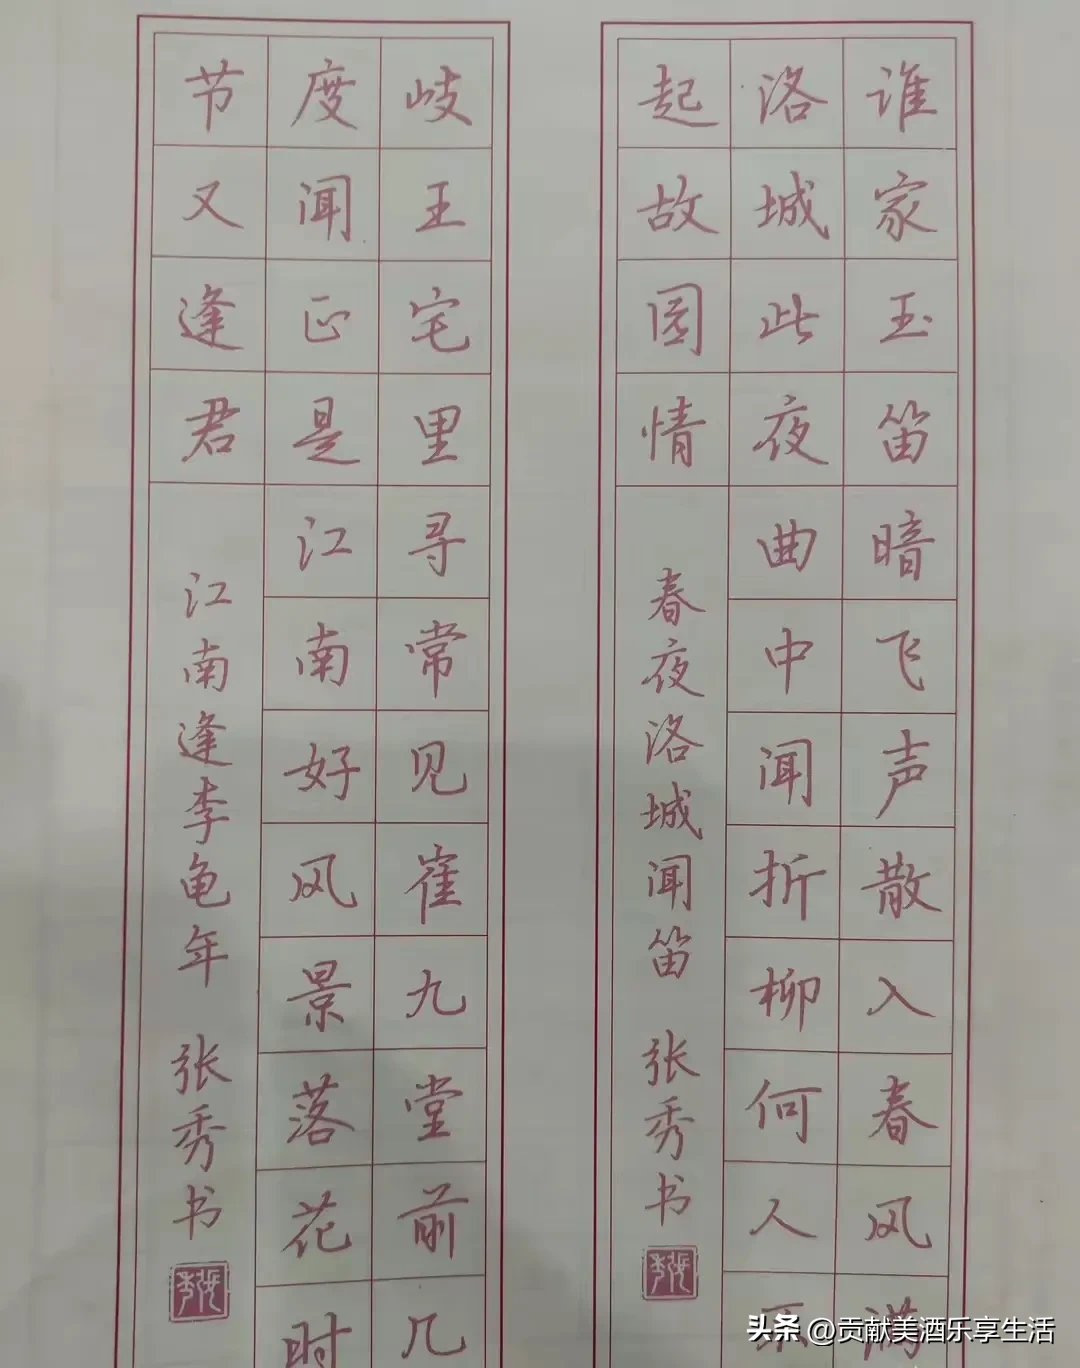 谁家玉笛暗飞声散入春风满
洛城此夜曲中闻折柳何人不
起故园情
春夜洛城闻笛 张秀书
岐王宅里寻常见崔九堂前几
度闻正是江南好风景落花时
节又逢君
江南逢李龟年 张秀书
头条 @贡献美酒乐享生活